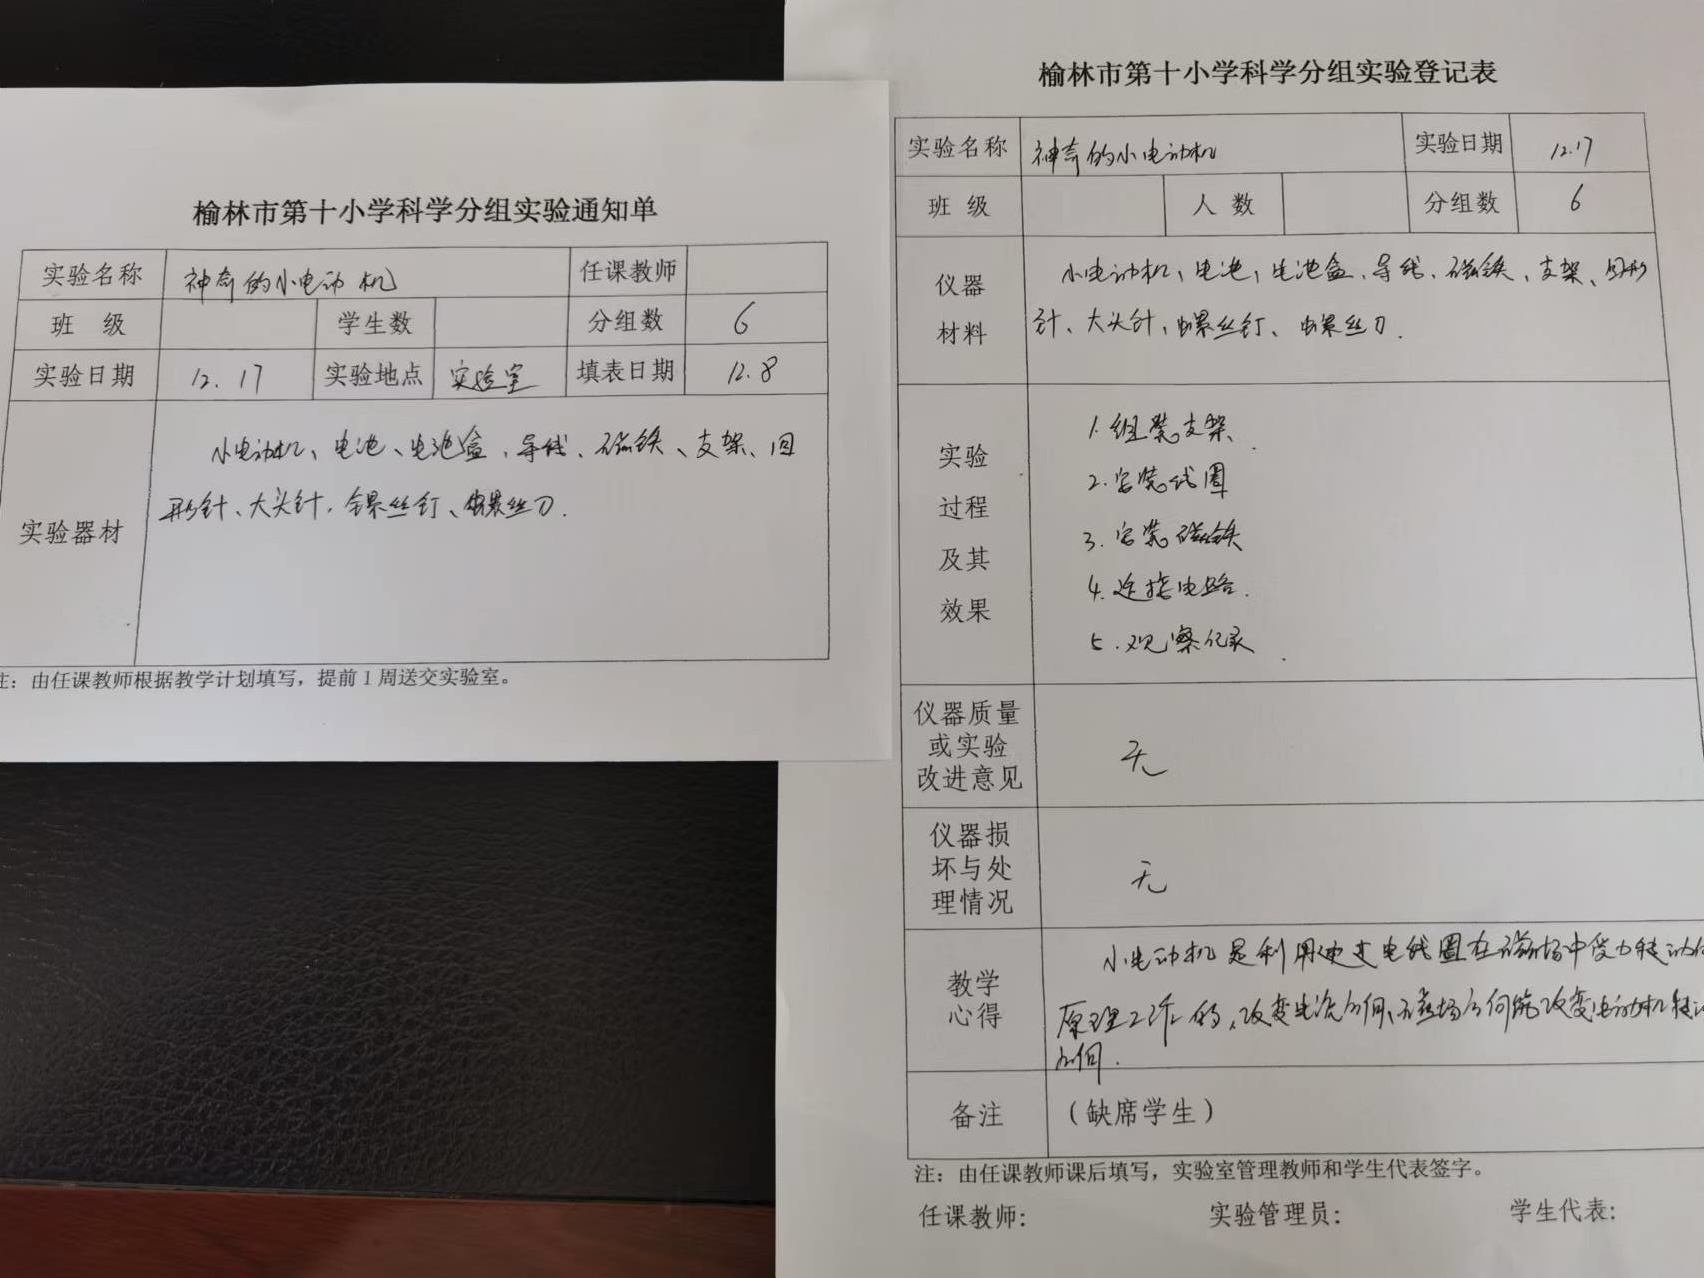 榆林市第十小学科学分组实验通知单
实验名称 神奇的小电动机 任课教师
班 级 学生数 分组数 6
实验日期 12.17 实验地点 实验室 填表日期 12.8
小电动机、电池、电池盒、导线、磁铁、支架、回
形针、大头针、螺丝钉、螺丝刀.
实验器材
注：由任课教师根据教学计划填写，提前1周送交实验室。
榆林市第十小学科学分组实验登记表
实验名称 神奇的小电动机 实验日期 12.17
班 级 人 数 分组数 6
仪器
材料
小电动机、电池、电池盒、导线、磁铁、支架、回形
针、大头针、螺丝钉、螺丝刀.
实验
过程
及其
效果
1.组装支架.
2.安装线圈
3.安装磁铁
4.连接电路.
5.观察记录.
仪器质量
或实验
改进意见
无
仪器损
坏与处
理情况
无
教学
心得
小电动机是利用通过电线圈在磁场中受力转动的
原理工作的,改变电流方向、磁场方向能改变电动机转动
方向.
备注
（缺席学生）
注：由任课教师课后填写，实验室管理教师和学生代表签字。
任课教师: 实验管理员: 学生代表: